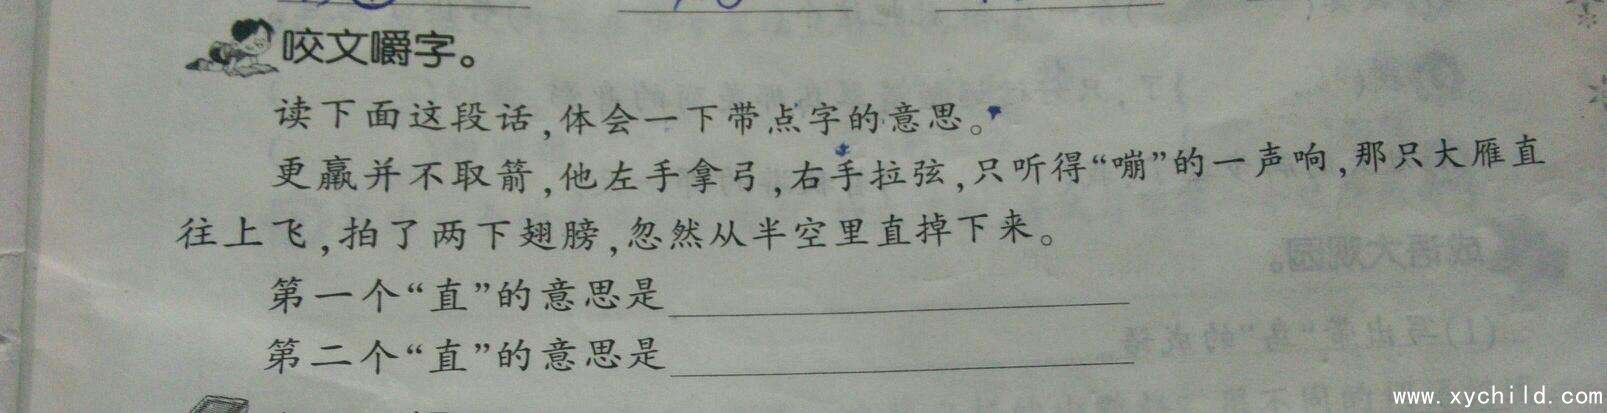 咬文嚼字。
读下面这段话,体会一下带点字的意思。
更羸并不取箭,他左手拿弓,右手拉弦,只听得“嘣”的一声响,那只大雁直
往上飞,拍了两下翅膀,忽然从半空里直掉下来。
第一个“直”的意思是
第二个“直”的意思是
www.xychild.com